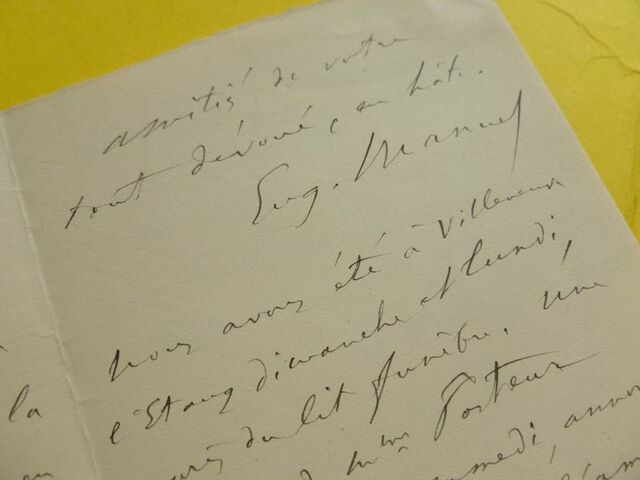 amitié de votre
tout dévoué, en hâte.
Eug. Manuel
Nous avons été à Villeneuve
l'Etang dimanche et lundi,
la
du lit funèbre. Une
en
Mme Pasteur
samedi,